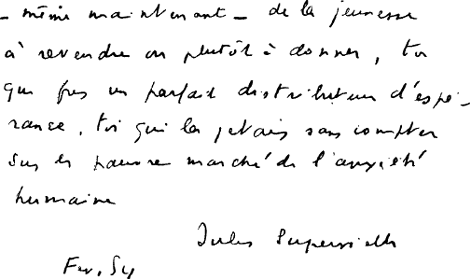 - même maintenant - de la jeunesse
à revendre ou plutôt à donner, toi
qui fus un parfait distributeur d'espé-
rance, toi qui la jetais sans compter
sur le pauvre marché de l'anxiété
humaine
Jules Supervielle
Fev. 54